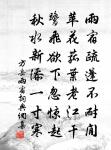 雨宿疏篷不耐閒
草花菰葉老江干
鷺飛欲下忽驚起
秋水新添一寸寒
方岳雨宿